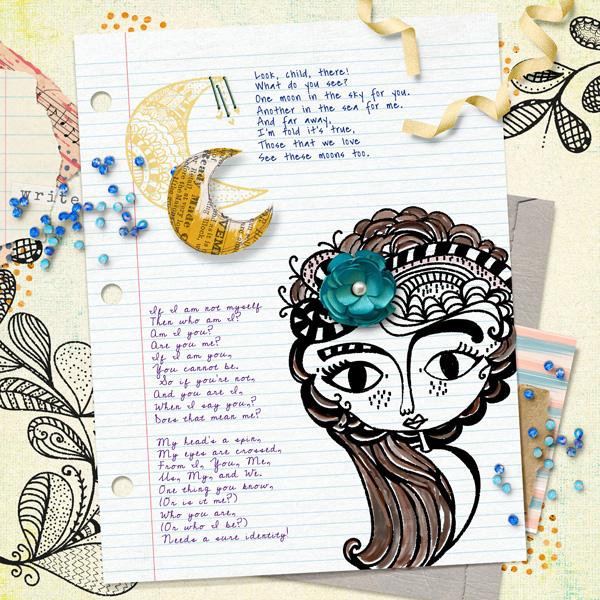 Look, child, there!
What do you see?
One moon in the sky for you.
Another in the sea for me.
And far away,
I'm told it's true,
Those that we love
See these moons too.
write
If I am not myself
Then who am I?
Am I you?
Are you me?
If I am you,
You cannot be.
So if you're not,
And you are I,
When I say you,?
Does that mean me?
My head's a spin,
My eyes are crossed,
From I, You, Me,
Us, My, and We.
One thing you know,
(Or is it me?)
Who you are,
(Or who I be?)
Needs a sure identity!